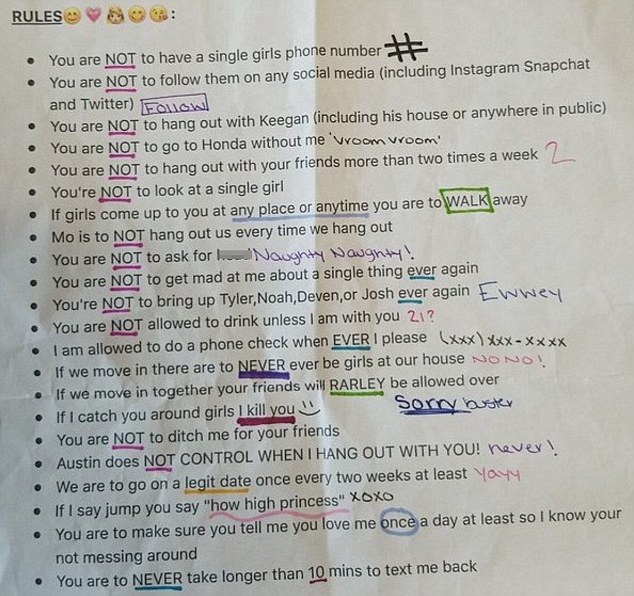 RULES😊💗👸😋😘:
• You are NOT to have a single girls phone number #
• You are NOT to follow them on any social media (including Instagram Snapchat
and Twitter) Follow
• You are NOT to hang out with Keegan (including his house or anywhere in public)
• You are NOT to go to Honda without me 'Vroom Vroom'
• You are NOT to hang out with your friends more than two times a week 2
• You're NOT to look at a single girl
• If girls come up to you at any place or anytime you are to WALK away
• Mo is to NOT hang out us every time we hang out
• You are NOT to ask for 'Naughty Naughty!
• You are NOT to get mad at me about a single thing ever again
• You're NOT to bring up Tyler,Noah,Deven,or Josh ever again Ewwey
• You are NOT allowed to drink unless I am with you 21?
• I am allowed to do a phone check when EVER I please (xxx) xxx-xxxx
• If we move in there are to NEVER ever be girls at our house NONO!
• If we move in together your friends will RARLEY be allowed over
• If I catch you around girls I kill you :) Sorry buster
• You are NOT to ditch me for your friends
• Austin does NOT CONTROL WHEN I HANG OUT WITH YOU! never!
• We are to go on a legit date once every two weeks at least Yayy
• If I say jump you say "how high princess" xoxo
• You are to make sure you tell me you love me once a day at least so I know your
not messing around
• You are to NEVER take longer than 10 mins to text me back